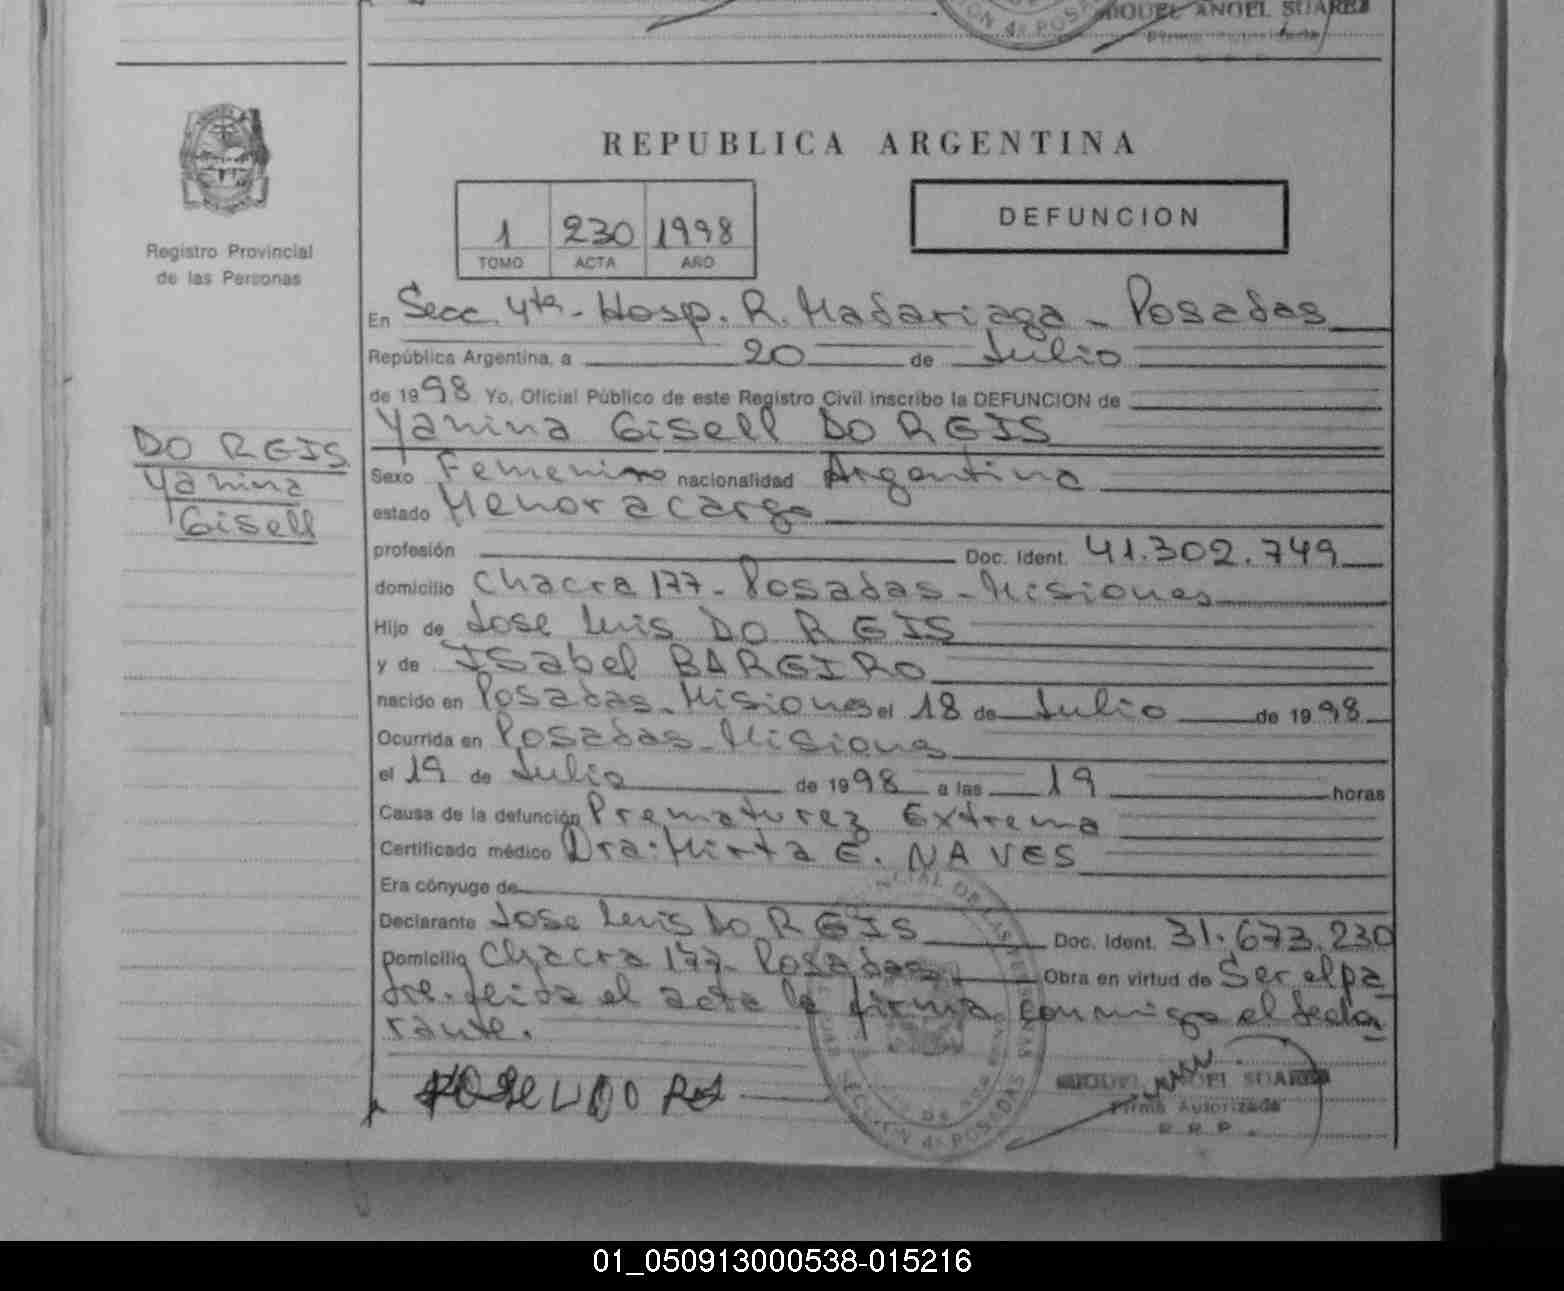 MIGUEL ANGEL SUAREZ
Firma Autorizada
REPUBLICA ARGENTINA
1 230 1998
TOMO ACTA AÑO
DEFUNCION
Registro Provincial
de las Personas
En Secc. 4ta. Hosp. R. Madariaga - Posadas
República Argentina, a 20 de Julio
de 1998 Yo, Oficial Público de este Registro Civil inscribo la DEFUNCION de
Yanina Gisell DO REIS
DO REIS
Yanina
Gisell
Sexo Femenino nacionalidad Argentina
estado Menor a cargo
profesión Doc. Ident. 41.302.749
domicilio Chacra 177 - Posadas - Misiones
Hijo de Jose Luis DO REIS
y de Isabel BAREIRO
nacido en Posadas - Misiones el 18 de Julio de 1998
Ocurrida en Posadas - Misiones
el 19 de Julio de 1998 a las 19 horas
Causa de la defunción Prematurez Extrema
Certificado médico Dra. Mirta E. NAVES
Era cónyuge de
Declarante Jose Luis DO REIS Doc. Ident. 31.673.230
Domicilio Chacra 177 - Posadas Obra en virtud de Ser el pa
dre. leida el acta la firma conmigo el decla
rante.
MIGUEL ANGEL SUAREZ
Firma Autorizada
R. R. P.
SECCION 4a POSADAS
01_050913000538-015216